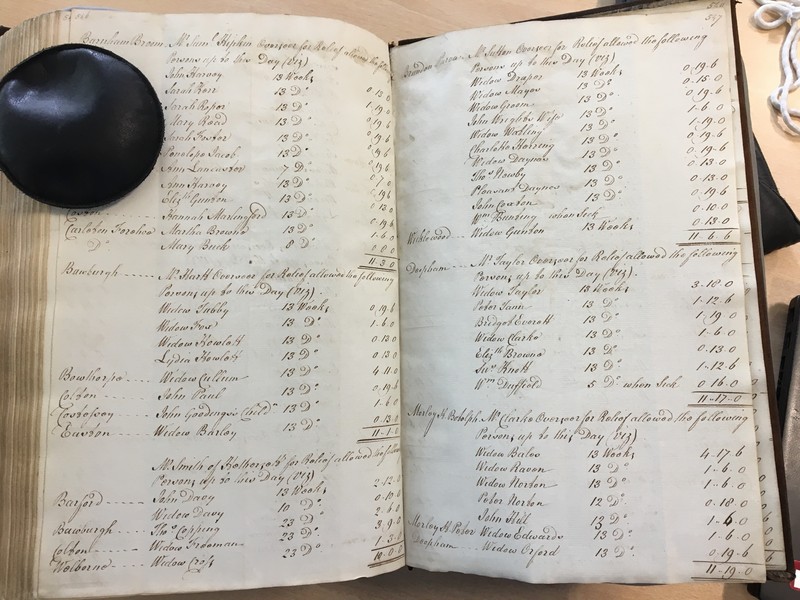 Barnham Broom. Mr. Saml. Hipkin Overseer for Relief allowed the follow
Persons up to this Day (Viz)
John Harvey 13 Weeks
Sarah Kerr 13 Do.
Sarah Roper 13 Do. 1-19-0
Mary Road 13 Do. 0.19.6
Sarah Foster 13 Do.
Penelope Jacob 13 Do.
Ann Lancaster 7 Do.
Ann Harvey 13 Do.
Eliz. Gunton 13 Do. 0.19.6
Coston Hannah Martingford 13 Do.
Carleton Forehoe Martha Browne 13 Do. 1-6-0
Do. Mary Buck 8 Do.
11-3-0
Bawburgh Mr. Hart Overseer for Relief allowed the following
Persons up to this Day (Viz).
Widow Tabby 13 Weeks 0.19.6
Widow Fox 13 Do. 1-6-0
Widow Howlett 13 Do. 0.13.0
Lydia Howlett 13 Do. 0.13.0
Bowthorpe Widow Cullum 13 Do. 4-11-0
Colton John Paul 13 Do. 0.19.6
Costessey John Goodings's Child 13 Do. 1-6-0
Easton Widow Barley 13 Do. 0.13.0
11-1-0
Mr. Smith of Hethersett for Relief allowed the follow
Persons up to this Day (Viz)
Barford John Davy 13 Weeks 2-12-0
Widow Davy 10 Do. 0.19.6
Bawburgh Thos. Copping 23 Do. 2-6-0
Colton Widow Freeman 23 Do. 3-9-0
Welborne Widow Cross 23 Do. 1-3-0
10-0-0
557
Brandon Mr. Sutton Overseer for Relief allowed the following
Persons up to this Day (Viz)
Widow Draper 13 Weeks 0.19.6
Widow Mayes 13 Do. 0-15-0
Widow Groom 13 Do. 0.19.6
John Wright's Wife 13 Do. 1-6-0
Widow Watling 13 Do. 1-19-0
Charlotte Herring 13 Do. 0.19.6
Widow Daynes 13 Do. 0.19.6
Thos. Newby 13 Do. 0.13.0
Pleasant Daynes 13 Do. 0.13.0
John Cowton 13 Do. 0.19.6
Wm. Bunting when Sick 0.10.0
Wicklewood Widow Gunton 13 Weeks 0.13.0
11-6-6
Deopham Mr. Taylor Overseer for Relief allowed the following
Persons up to this Day (Viz).
Widow Taylor 13 Weeks 3-18-0
Peter Tann 13 Do. 1-12-6
Bridget Everett 13 Do. 1-19-0
Widow Clarke 13 Do. 1-6-0
Elizth. Browne 13 Do. 0-13-0
Sus. Knott 13 Do. 1-12-6
Wm. Duffield 5 Do. when Sick 0-16-0
11-17-0
Morley St. Botolph Mr. Clarke Overseer for Relief allowed the following
Persons up to this Day (Viz)
Widow Bales 13 Weeks 4-17-6
Widow Raven 13 Do. 1-6-0
Widow Norton 13 Do. 1-6-0
Peter Norton 12 Do. 0-18-0
John Hill 13 Do. 1-6-0
Morley St. Peter Widow Edwards 13 Do. 1-6-0
Deopham Widow Orford 13 Do. 0-19-6
11-19-0